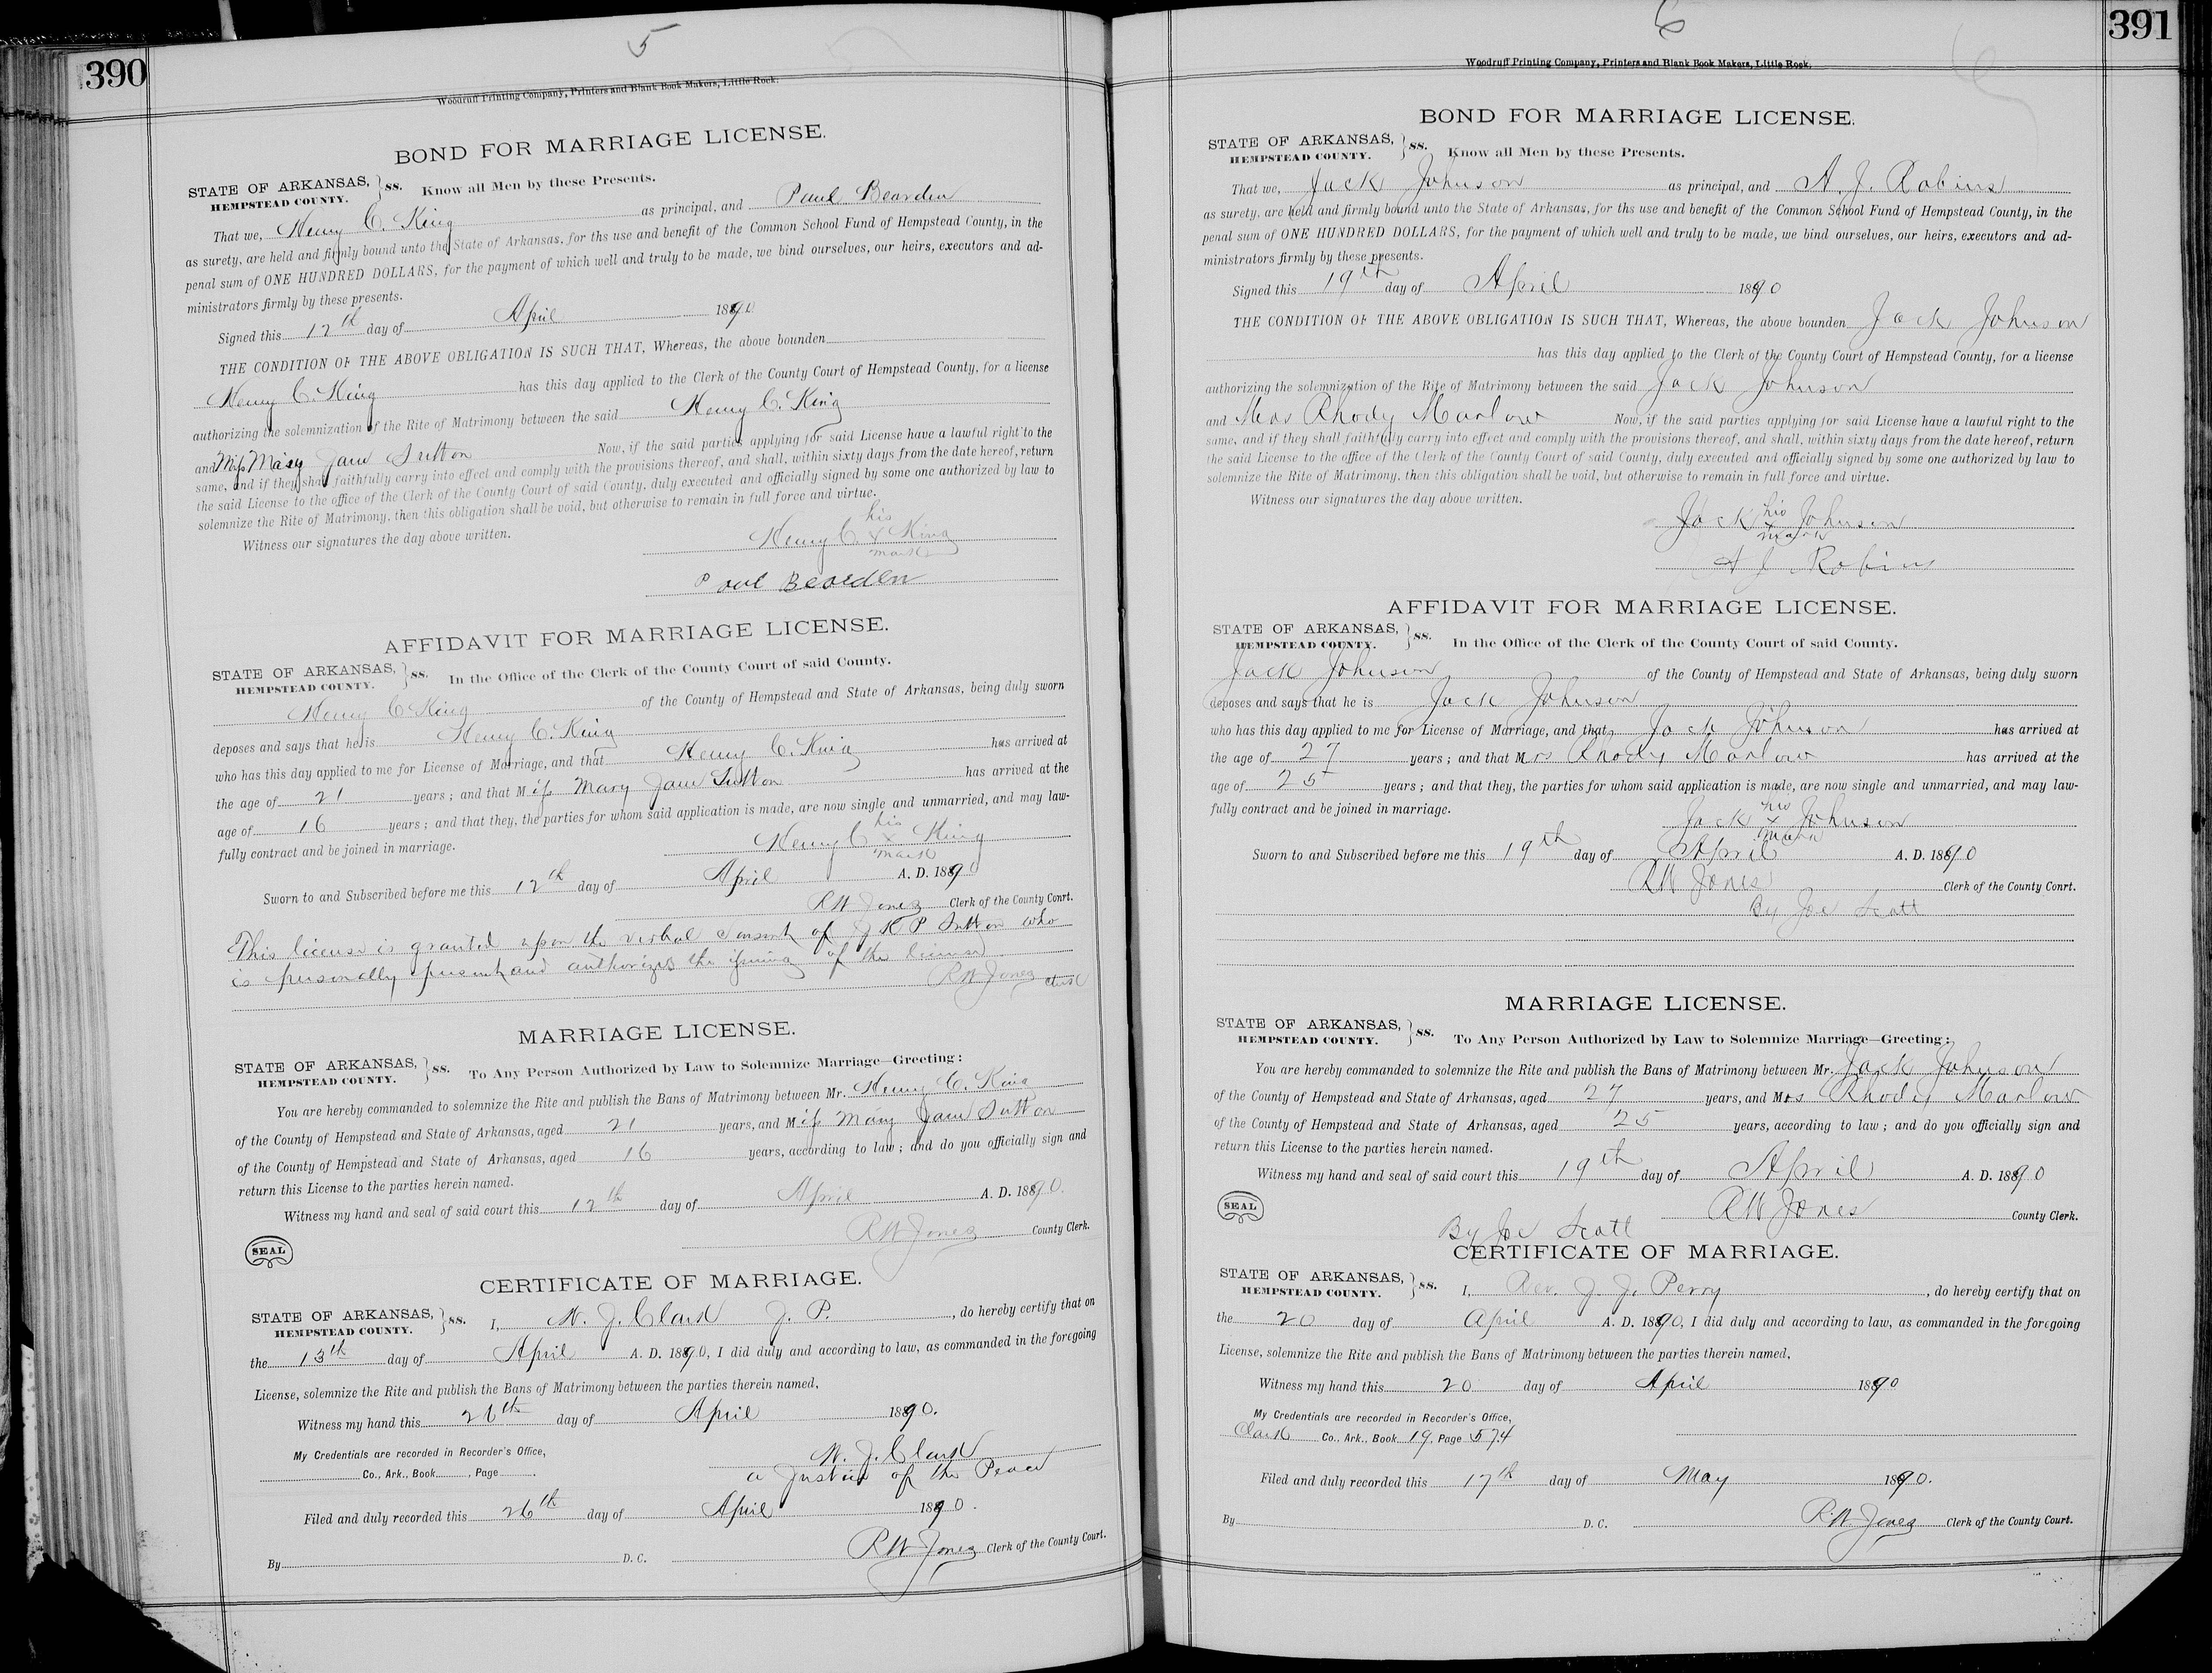 390
5
Woodruff Printing Company, Printers and Blank Book Makers, Little Rock.
BOND FOR MARRIAGE LICENSE.
STATE OF ARKANSAS, } ss. Know all Men by these Presents.
HEMPSTEAD COUNTY.
That we, Henry C. King as principal, and Paul Bearden
as surety, are held and firmly bound unto the State of Arkansas, for ths use and benefit of the Common School Fund of Hempstead County, in the
penal sum of ONE HUNDRED DOLLARS, for the payment of which well and truly to be made, we bind ourselves, our heirs, executors and ad-
ministrators firmly by these presents.
Signed this 12th day of April 1890
THE CONDITION OF THE ABOVE OBLIGATION IS SUCH THAT, Whereas, the above bounden
Henry C. King has this day applied to the Clerk of the County Court of Hempstead County, for a license
authorizing the solemnization of the Rite of Matrimony between the said Henry C. King
and Miss Mary Jane Sutton Now, if the said parties applying for said License have a lawful right to the
same, and if they shall faithfully carry into effect and comply with the provisions thereof, and shall, within sixty days from the date hereof, return
the said License to the office of the Clerk of the County Court of said County, duly executed and officially signed by some one authorized by law to
solemnize the Rite of Matrimony, then this obligation shall be void, but otherwise to remain in full force and virtue.
Witness our signatures the day above written.
his
Henry C x King
mark
Paul Bearden
AFFIDAVIT FOR MARRIAGE LICENSE.
STATE OF ARKANSAS, } ss. In the Office of the Clerk of the County Court of said County.
HEMPSTEAD COUNTY.
Henry C King of the County of Hempstead and State of Arkansas, being duly sworn
deposes and says that he is Henry C. King
who has this day applied to me for License of Marriage, and that Henry C. King has arrived at
the age of 21 years; and that Miss Mary Jane Sutton has arrived at the
age of 16 years; and that they, the parties for whom said application is made, are now single and unmarried, and may law-
fully contract and be joined in marriage.
his
Henry C x King
mark
Sworn to and Subscribed before me this 12th day of April A. D. 1890
R W Jones Clerk of the County Conrt.
This license is granted upon the verbal consent of J K P Sutton who
is personally present and authorizes the issuing of the license
R W Jones clerk
MARRIAGE LICENSE.
STATE OF ARKANSAS, } ss. To Any Person Authorized by Law to Solemnize Marriage—Greeting:
HEMPSTEAD COUNTY.
You are hereby commanded to solemnize the Rite and publish the Bans of Matrimony between Mr. Henry C. King
of the County of Hempstead and State of Arkansas, aged 21 years, and Miss Mary Jane Sutton
of the County of Hempstead and State of Arkansas, aged 16 years, according to law; and do you officially sign and
return this License to the parties herein named.
Witness my hand and seal of said court this 12th day of April A. D. 1890.
SEAL
R W Jones County Clerk.
CERTIFICATE OF MARRIAGE.
STATE OF ARKANSAS, } ss. I, W. J. Clark J. P., do hereby certify that on
HEMPSTEAD COUNTY.
the 13th day of April A. D. 1890, I did duly and according to law, as commanded in the foregoing
License, solemnize the Rite and publish the Bans of Matrimony between the parties therein named,
Witness my hand this 26th day of April 1890.
My Credentials are recorded in Recorder's Office,
Co., Ark., Book , Page .
W. J. Clark
a Justice of the Peace
Filed and duly recorded this 26th day of April 1890.
By D. C. R W Jones Clerk of the County Court.
391
6
Woodruff Printing Company, Printers and Blank Book Makers, Little Rock.
BOND FOR MARRIAGE LICENSE.
STATE OF ARKANSAS, } ss. Know all Men by these Presents.
HEMPSTEAD COUNTY.
That we, Jack Johnson as principal, and A. J. Robins
as surety, are held and firmly bound unto the State of Arkansas, for ths use and benefit of the Common School Fund of Hempstead County, in the
penal sum of ONE HUNDRED DOLLARS, for the payment of which well and truly to be made, we bind ourselves, our heirs, executors and ad-
ministrators firmly by these presents.
Signed this 19th day of April 1890
THE CONDITION OF THE ABOVE OBLIGATION IS SUCH THAT, Whereas, the above bounden Jack Johnson
has this day applied to the Clerk of the County Court of Hempstead County, for a license
authorizing the solemnization of the Rite of Matrimony between the said Jack Johnson
and Mrs Rhody Marlow Now, if the said parties applying for said License have a lawful right to the
same, and if they shall faithfully carry into effect and comply with the provisions thereof, and shall, within sixty days from the date hereof, return
the said License to the office of the Clerk of the County Court of said County, duly executed and officially signed by some one authorized by law to
solemnize the Rite of Matrimony, then this obligation shall be void, but otherwise to remain in full force and virtue.
Witness our signatures the day above written.
his
Jack x Johnson
mark
A J Robins
AFFIDAVIT FOR MARRIAGE LICENSE.
STATE OF ARKANSAS, } ss. In the Office of the Clerk of the County Court of said County.
HEMPSTEAD COUNTY.
Jack Johnson of the County of Hempstead and State of Arkansas, being duly sworn
deposes and says that he is Jack Johnson
who has this day applied to me for License of Marriage, and that Jack Johnson has arrived at
the age of 27 years; and that Mrs Rhody Marlow has arrived at the
age of 25 years; and that they, the parties for whom said application is made, are now single and unmarried, and may law-
fully contract and be joined in marriage.
his
Jack x Johnson
mark
Sworn to and Subscribed before me this 19th day of April A. D. 1890
R W Jones Clerk of the County Conrt.
By Joe Scott
MARRIAGE LICENSE.
STATE OF ARKANSAS, } ss. To Any Person Authorized by Law to Solemnize Marriage—Greeting:
HEMPSTEAD COUNTY.
You are hereby commanded to solemnize the Rite and publish the Bans of Matrimony between Mr. Jack Johnson
of the County of Hempstead and State of Arkansas, aged 27 years, and Mrs Rhody Marlow
of the County of Hempstead and State of Arkansas, aged 25 years, according to law; and do you officially sign and
return this License to the parties herein named.
Witness my hand and seal of said court this 19th day of April A. D. 1890
SEAL
R W Jones County Clerk.
By Joe Scott
CERTIFICATE OF MARRIAGE.
STATE OF ARKANSAS, } ss. I, Rev. J. J. Perry, do hereby certify that on
HEMPSTEAD COUNTY.
the 20 day of April A. D. 1890, I did duly and according to law, as commanded in the foregoing
License, solemnize the Rite and publish the Bans of Matrimony between the parties therein named,
Witness my hand this 20 day of April 1890
My Credentials are recorded in Recorder's Office,
Clark Co., Ark., Book 19, Page 574
Filed and duly recorded this 17th day of May 1890.
By D. C. R. W. Jones Clerk of the County Court.